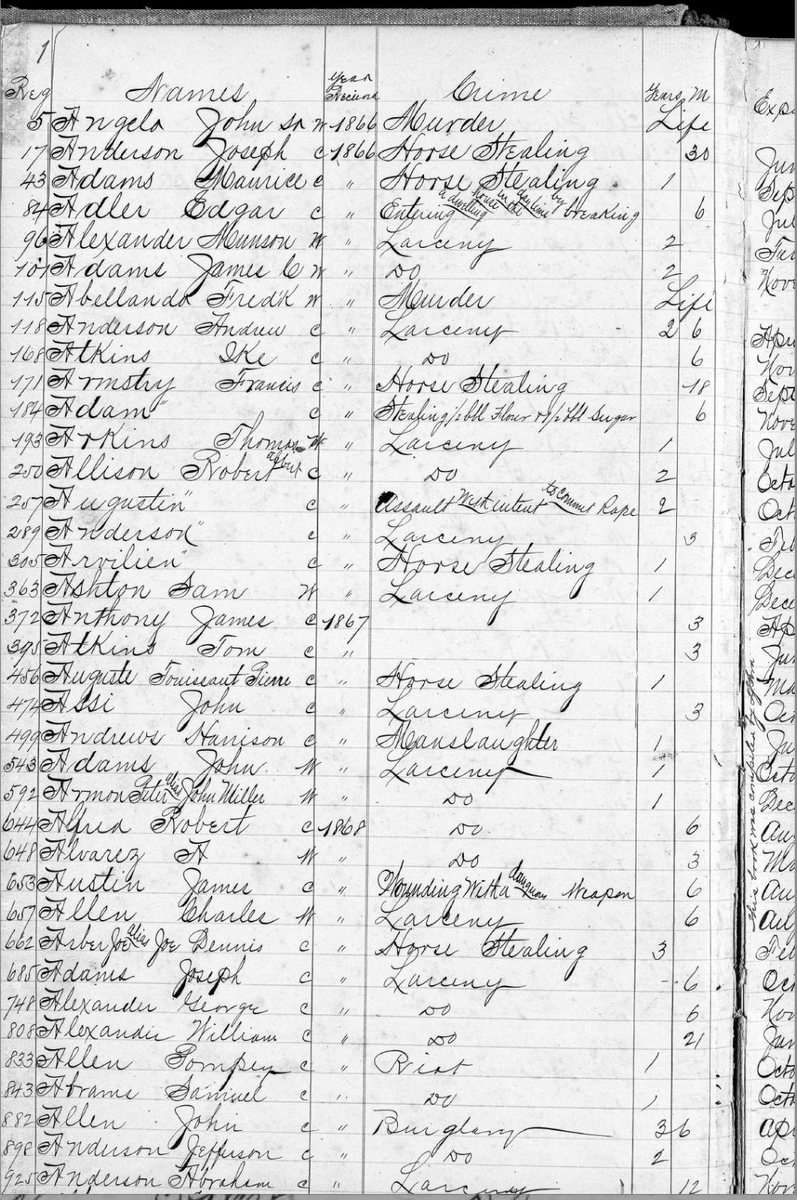 1
Reg Names Year Received Crime Years M
5 Angelo John Sr W 1866 Murder Life
17 Anderson Joseph C 1866 Horse Stealing 30
43 Adams Maurice C " Horse Stealing 1
84 Adler Edgar C " Entering a dwelling house in the day time by breaking 6
96 Alexander Munson W " Larceny 2
101 Adams James C W " DO 2
115 Abellando Fredk W " Murder Life
118 Anderson Andrew C " Larceny 2 6
168 Atkins Ike C " DO 6
171 Armstry Francis C " Horse Stealing 18
184 Adam " C " Stealing 1/2 bbl Flour & 1/2 bbl Sugar 6
193 Arkins Thomas W " Larceny 1
250 Allison Robert C " DO 2
257 Augustin " C " Assault With intent to Commit Rape 2
289 Anderson " C " Larceny 3
305 Arvilien " C " Horse Stealing 1
363 Ashton Sam W " Larceny 1
372 Anthony James C 1867 3
395 Atkins Tom C " 3
456 Auguste Touiseaut Pierre C " Horse Stealing 1
474 Assi John C " Larceny 3
499 Andrews Harrison C " Manslaughter 1
543 Adams John W " Larceny 1
592 Armon Peter alias John Miller W " DO 1
644 Alfred Robert C 1868 DO 6
648 Alvarez A W " DO 3
653 Austin James C " Wounding With a dangrous Weapon 6
657 Allen Charles W " Larceny 6
662 Arber Joe alias Joe Dennis C " Horse Stealing 3
685 Adams Joseph C " Larceny - 6
748 Alexander George C " DO 6
808 Alexander William C " DO 21
833 Allen Pompey C " Riot 1
843 Abrams Samuel C " DO 1
882 Allen John C " Burglary 3 6
898 Anderson Jefferson C " DO 2
925 Anderson Abraham C " Larceny 12
This book was compiled by
Exp
Jun
Sep
Jul
Nove
Apr
Nov
Sept
Nov
Jul
Octo
Oct
Feb
Dece
Dece
Ap
Jun
Ma
Oct
Ja
Octo
Dec
Au
Ma
Au
Feb
Oct
Nov
Jan
Octo
Octo
Apr
Oct
Nov